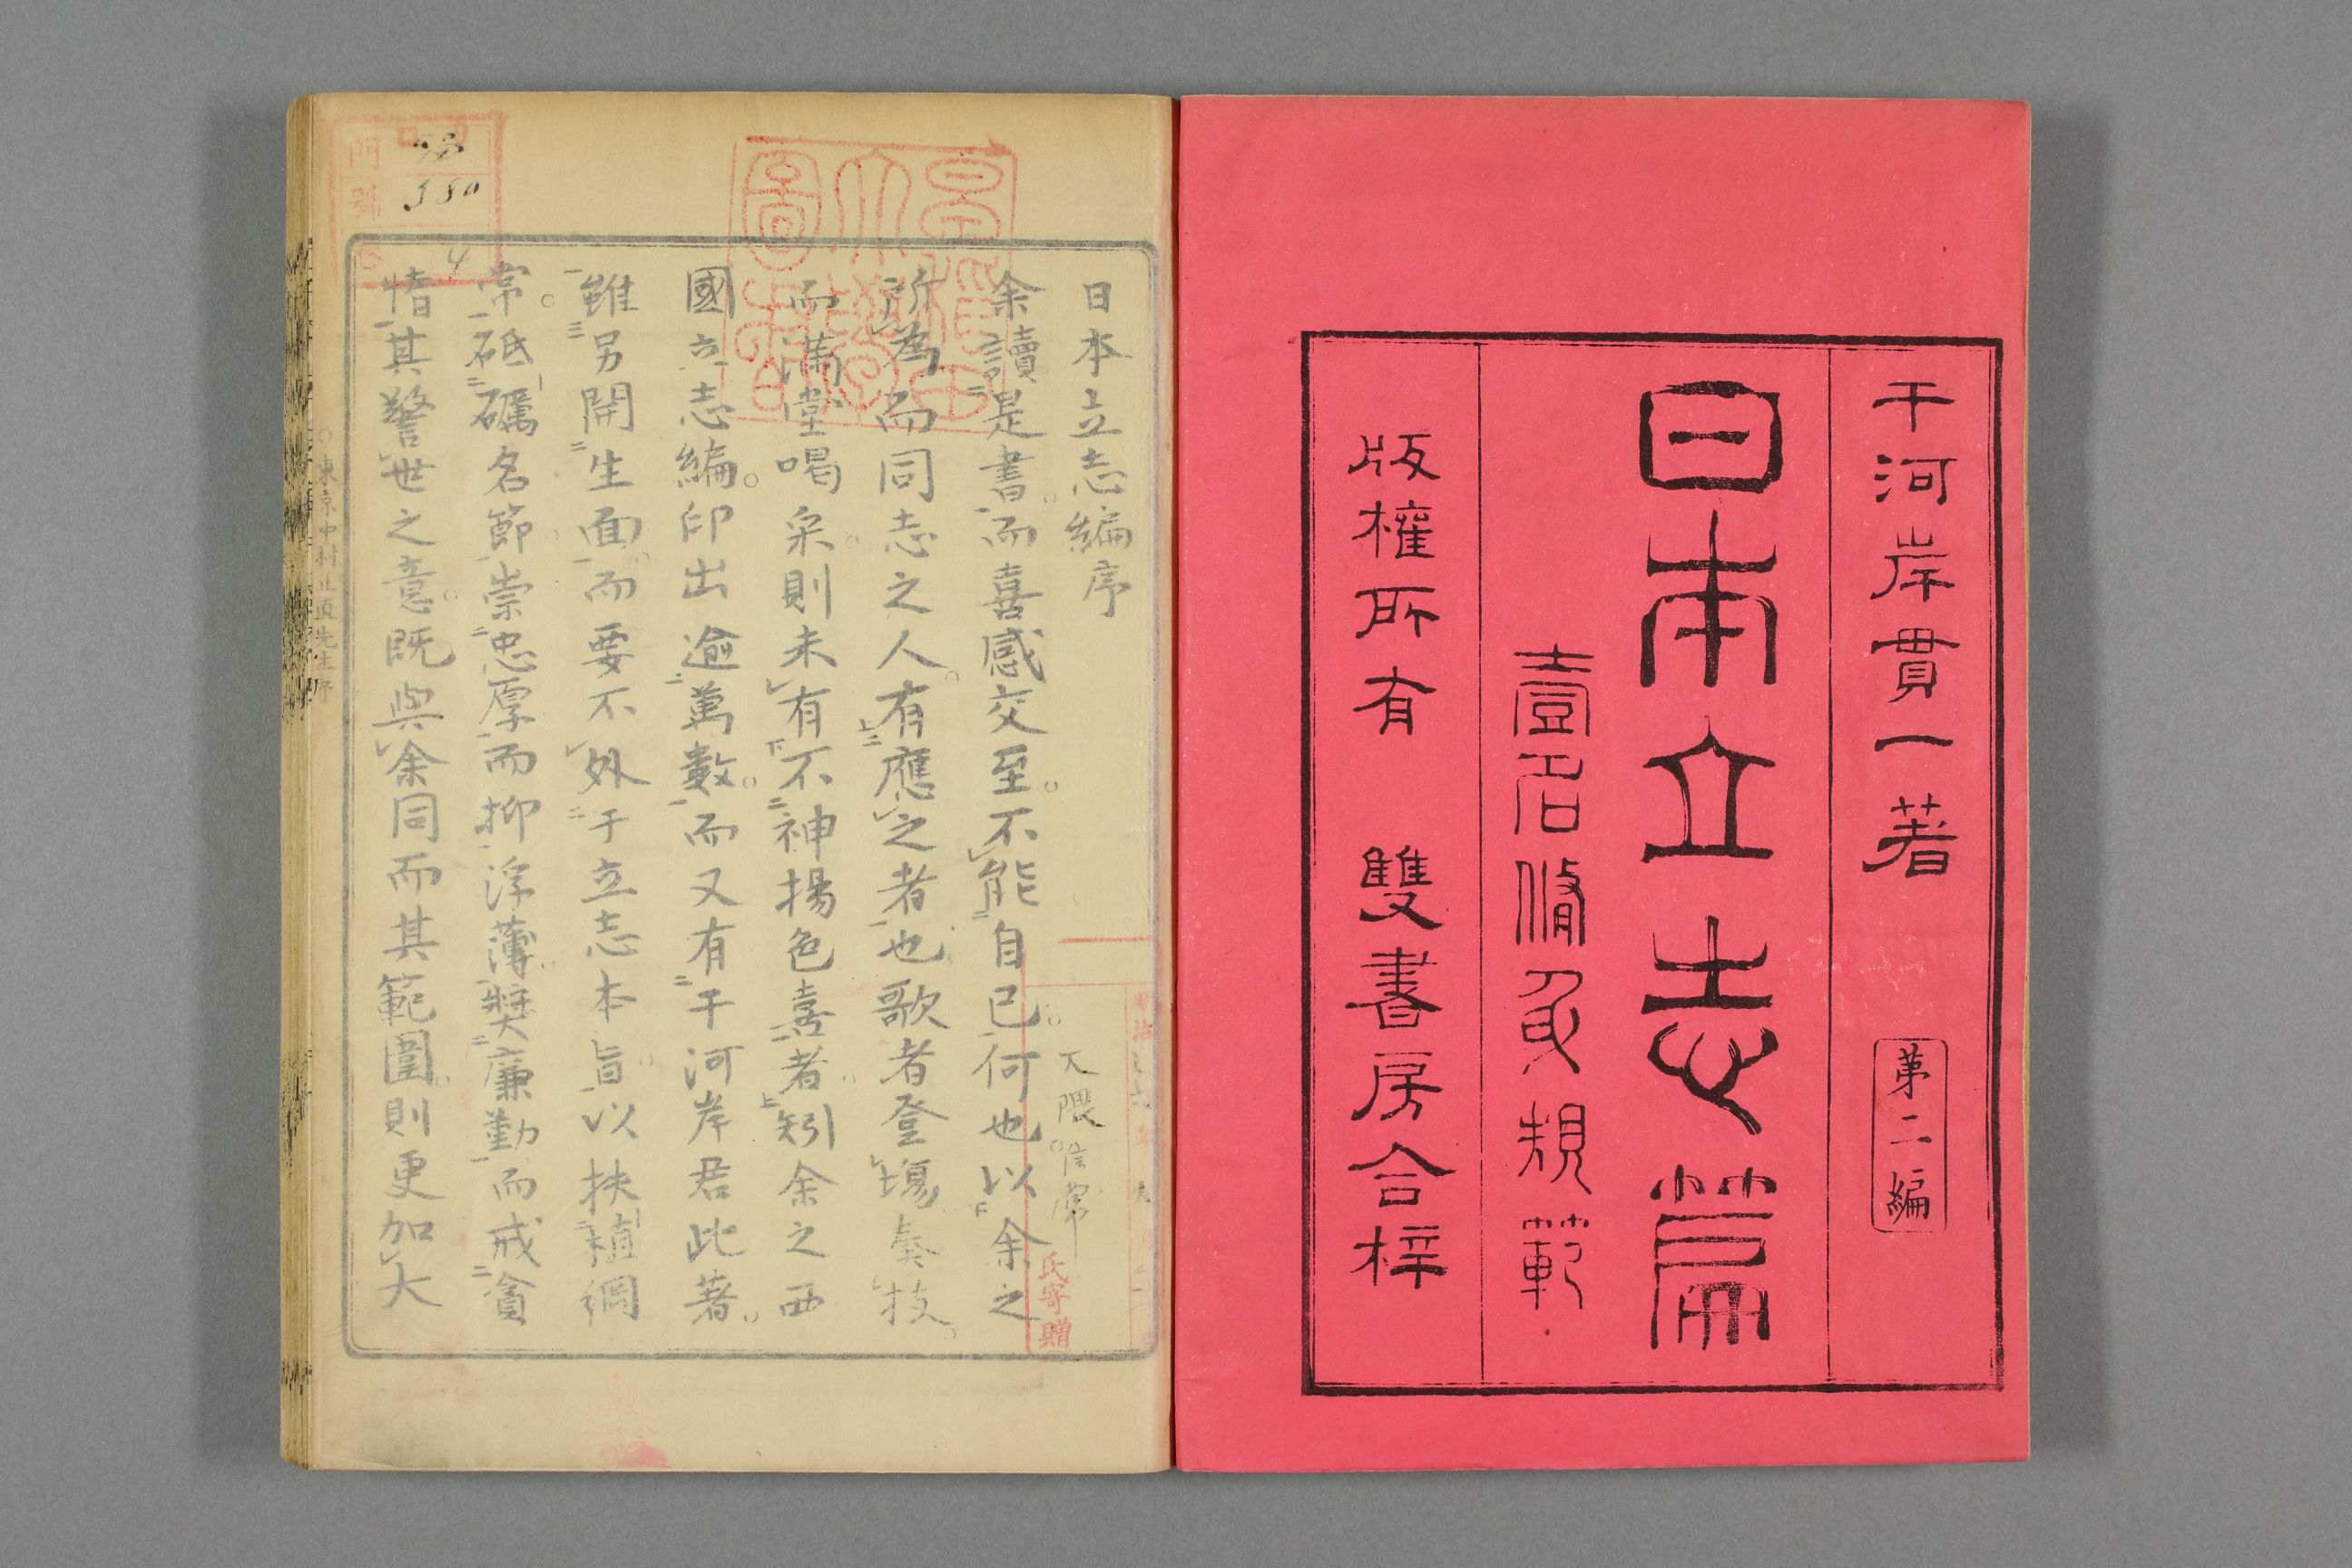 干河岸貫一著
第二編
日本立志篇
壹名脩身規範
版權所有 雙書房合梓
日本立志編序
余讀是書而喜感交至不能自已何也以余之
所為而同志之人有應之者也歌者登場奏技
而滿堂喝采則未有不神揚色喜者矧余之西
國立志編印出逾萬數而又有干河岸君此著
雖另開生面而要不外于立志本旨以扶植綱
常砥礪名節崇忠厚而抑浮薄奬廉勤而戒貪
惰其警世之意既與余同而其範圍則更加大
東京中村正直先生序
門
號
380
4
大隈信常
氏寄贈